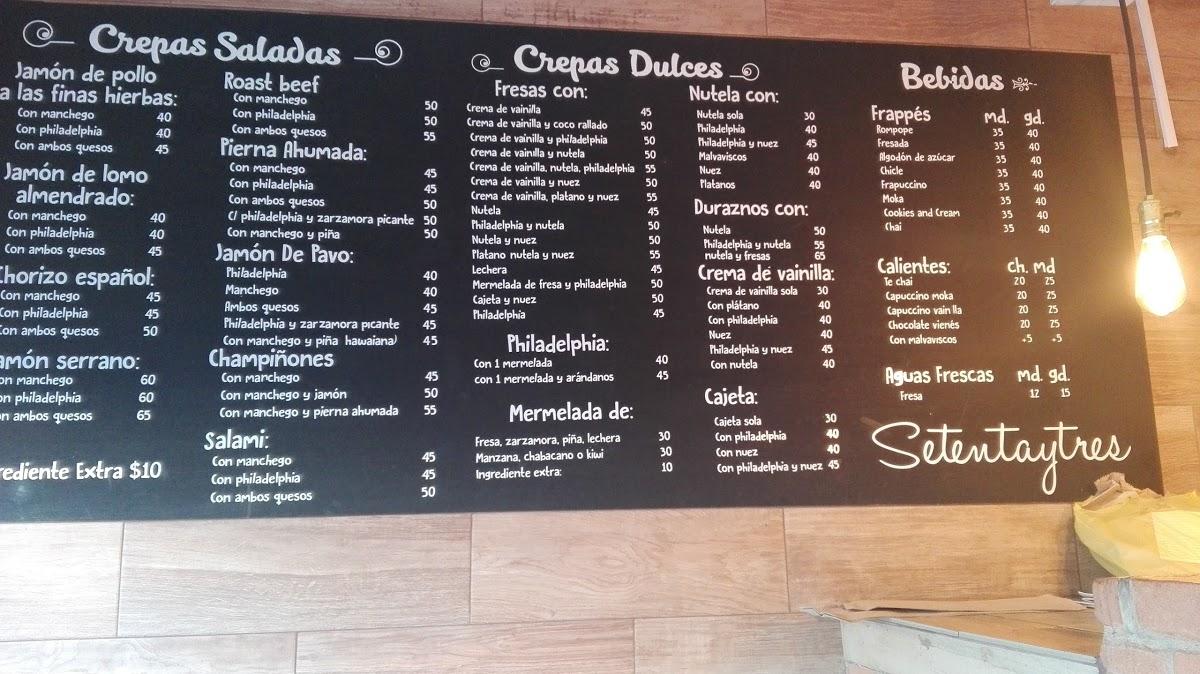 Crepas Saladas
Jamón de pollo
a las finas hierbas:
Con manchego 40
Con philadelphia 40
Con ambos quesos 45
Jamón de lomo
almendrado:
Con manchego 40
Con philadelphia 40
Con ambos quesos 45
Chorizo español:
Con manchego 45
Con philadelphia 45
Con ambos quesos 50
amón serrano:
on manchego 60
on philadelphia 60
on ambos quesos 65
rediente Extra $10
Roast beef
Con manchego 50
Con philadelphia 50
Con ambos quesos 55
Pierna Ahumada:
Con manchego 45
Con philadelphia 45
Con ambos quesos 50
C/ philadelphia y zarzamora picante 50
Con manchego y piña 50
Jamón De Pavo:
Philadelphia 40
Manchego 40
Ambos quesos 45
Philadelphia y zarzamora picante 45
Con manchego y piña hawaiana) 45
Champiñones
Con manchego 45
Con manchego y jamón 50
Con manchego y pierna ahumada 55
Salami:
Con manchego 45
Con philadelphia 45
Con ambos quesos 50
Crepas Dulces
Fresas con:
Crema de vainilla 45
Crema de vainilla y coco rallado 50
Crema de vainilla y philadelphia 50
Crema de vainilla y nutela 50
Crema de vainilla, nutela, philadelphia 55
Crema de vainilla y nuez 50
Crema de vainilla, platano y nuez 55
Nutela 45
Philadelphia y nutela 50
Nutela y nuez 50
Platano nutela y nuez 55
Lechera 45
Mermelada de fresa y philadelphia 50
Cajeta y nuez 50
Philadelphia 45
Philadelphia:
Con 1 mermelada 40
con 1 mermelada y arándanos 45
Mermelada de:
Fresa, zarzamora, piña, lechera 30
Manzana, chabacano o kiwi 30
Ingrediente extra: 10
Nutela con:
Nutela sola 30
Philadelphia 40
Philadelphia y nuez 45
Malvaviscos 40
Nuez 40
Platanos 40
Duraznos con:
Nutela 50
Philadelphia y nutela 55
nutela y fresas 65
Crema de vainilla:
Crema de vainilla sola 30
Con plátano 40
Con philadelphia 40
Nuez 40
Philadelphia y nuez 45
Con nutela 40
Cajeta:
Cajeta sola 30
Con philadelphia 40
Con nuez 40
Con philadelphia y nuez 45
Bebidas
Frappés md. gd.
Rompope 35 40
Fresada 35 40
Algodón de azúcar 35 40
Chicle 35 40
Frapuccino 35 40
Moka 35 40
Cookies and Cream 35 40
Chai 35 40
Calientes: ch. md
Te chai 20 25
Capuccino moka 20 25
Capuccino vain lla 20 25
Chocolate vienés 20 25
Con malvaviscos +5 +5
Aguas Frescas md. gd.
Fresa 12 15
Setentaytres